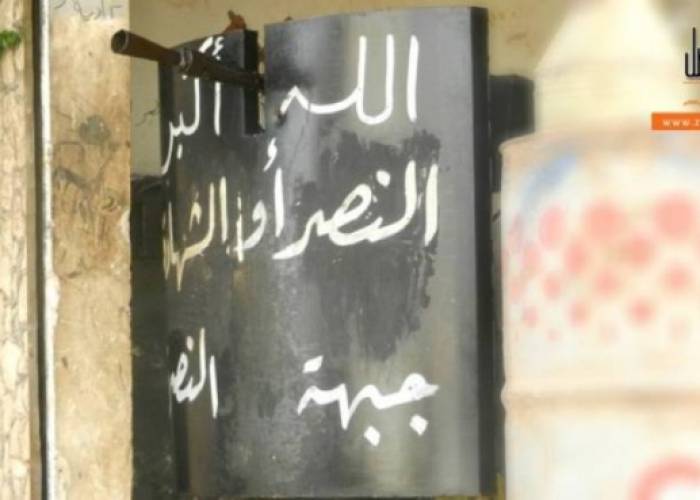 الله أكبر
النصر أو الشها
جبهة النصر
www.z